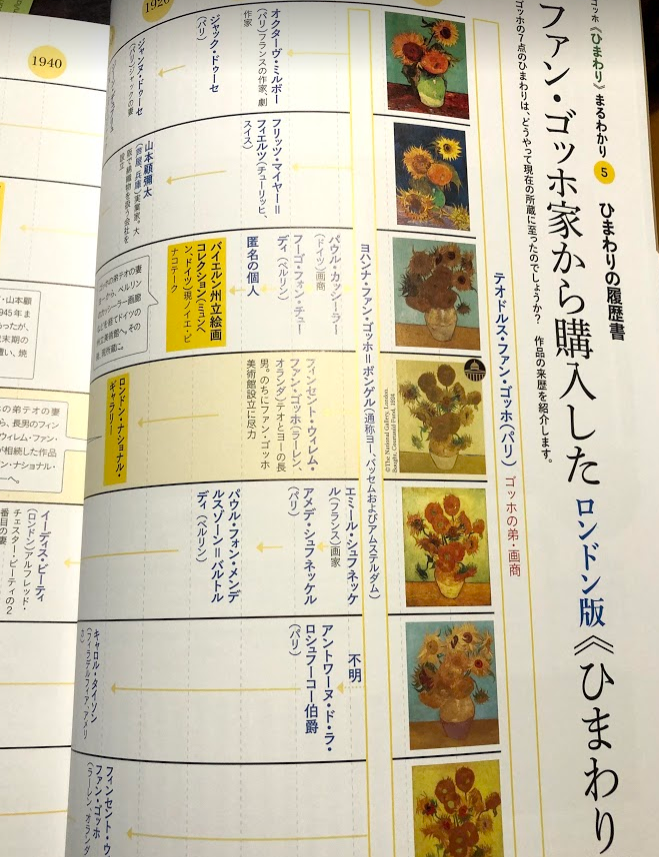 ゴッホ《ひまわり》まるわかり 5 ひまわりの履歴書
ファン・ゴッホ家から購入した ロンドン版《ひまわり
ゴッホの7点のひまわりは、どうやって現在の所蔵に至ったのでしょうか? 作品の来歴を紹介します。
テオドルス・ファン・ゴッホ(パリ) ゴッホの弟・画商
ヨハンナ・ファン・ゴッホ=ボンゲル(通称ヨー、バッセムおよびアムステルダム)
1920
オクターヴ・ミルボー
(パリ)フランスの作家、劇
作家
ジャック・ドゥーセ
(パリ)
ジャンヌ・ドゥーセ
(パリ)ジャックの妻
フリッツ・マイヤー=
フィエルツ(チューリッヒ、
スイス)
山本顧彌太
(芦屋、兵庫)実業家。大
阪で綿織物を扱う会社を
設立
パウル・カッシーラー
(ドイツ)画商
フーゴ・フォン・チュー
ディ(ベルリン)
匿名の個人
バイエルン州立絵画
コレクション(ミュンヘ
ン、ドイツ)現ノイエ・ピ
ナコテーク
©The National Gallery, London.
Bought, Courtauld Fund, 1924
フィンセント・ウィレム・
ファン・ゴッホ(ラーレン、
オランダ)テオとヨーの長
男。のちにファン・ゴッホ
美術館設立に尽力
ロンドン・ナショナル・
ギャラリー
エミール・シュフネッケ
ル(フランス)画家
アメデ・シュフネッケル
(パリ)
パウル・フォン・メンデ
ルスゾーン=バルトル
ディ(ベルリン)
イーディス・ビーティ
(ロンドン)アルフレッド・
チェスター・ビーティの2
番目の妻
不明
アントワーヌ・ド・ラ・
ロシュフーコー伯爵
(パリ)
キャロル・タイソン
(フィラデルフィア、アメリ
カ)
フィンセント・ウ
ファン・ゴッホ
(ラーレン、オランダ
1940